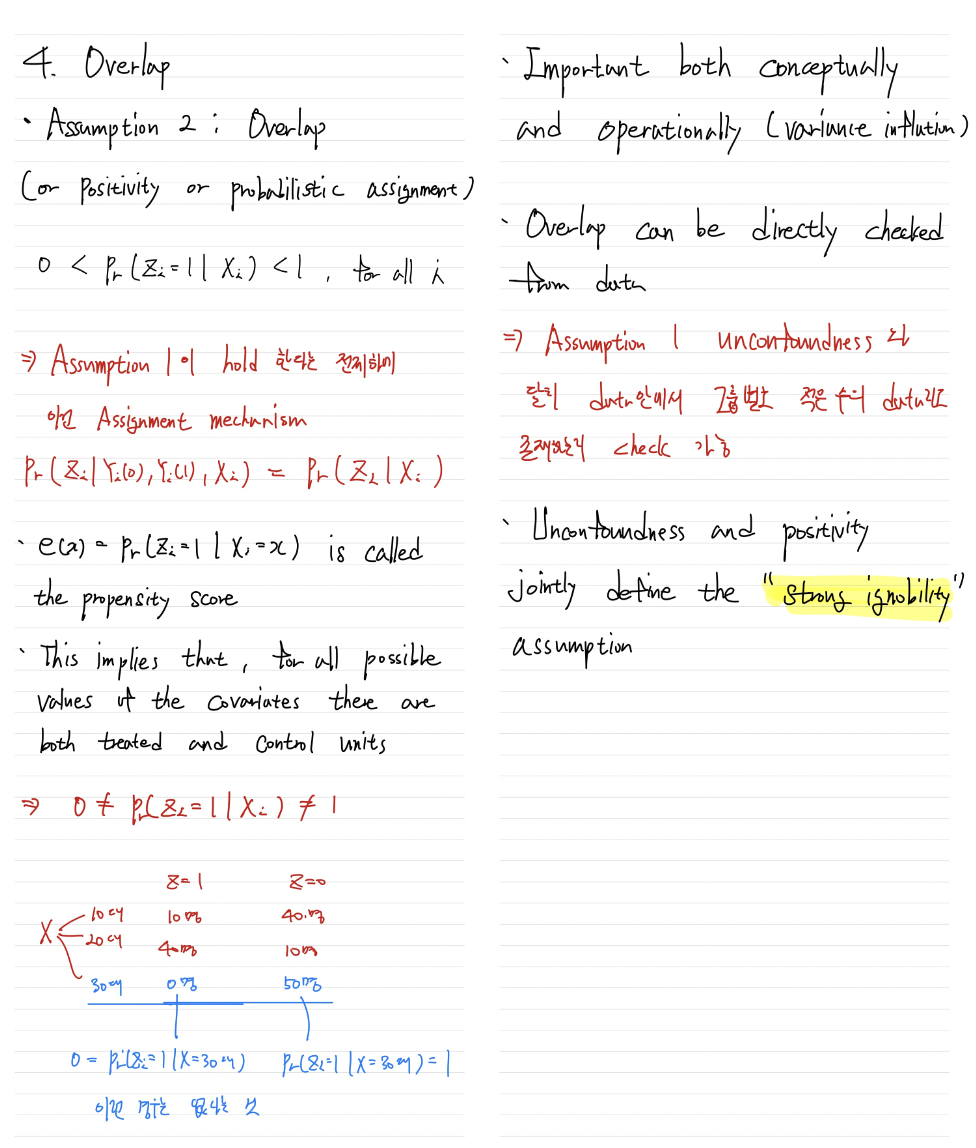 4. Overlap
· Assumption 2 : Overlap
(or positivity or probabilistic assignment)
0 < Pr(Zi=1 | Xi) < 1 , for all i
⇒ Assumption 1이 hold 한다는 전제하에
이런 Assignment mechanism
Pr(Zi | Yi(0), Yi(1), Xi) = Pr(Zi | Xi)
· e(x) = Pr(Zi=1 | Xi=x) is called
the propensity score
· This implies that, for all possible
values of the covariates there are
both treated and control units
⇒ 0 ≠ Pr(Zi=1 | Xi) ≠ 1
Z=1 Z=0
X 10대 10명 40명
20대 40명 10명
30대 0명 50명
0 = Pr(Zi=1 | X=30대) Pr(Zi=1 | X=30대) = 1
이런 경우는 없다는 것
· Important both conceptually
and operationally (variance inflation)
· Overlap can be directly checked
from data
⇒ Assumption 1 unconfoundness 와
달리 data안에서 그룹별로 적은 수의 data라도
존재하는지 check 가능
· Unconfoundness and positivity
jointly define the "strong ignobility"
assumption